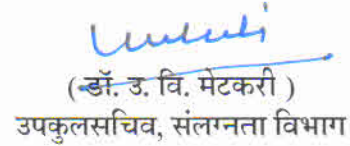 (डॉ. उ. वि. मेटकरी )
उपकुलसचिव, संलग्नता विभाग